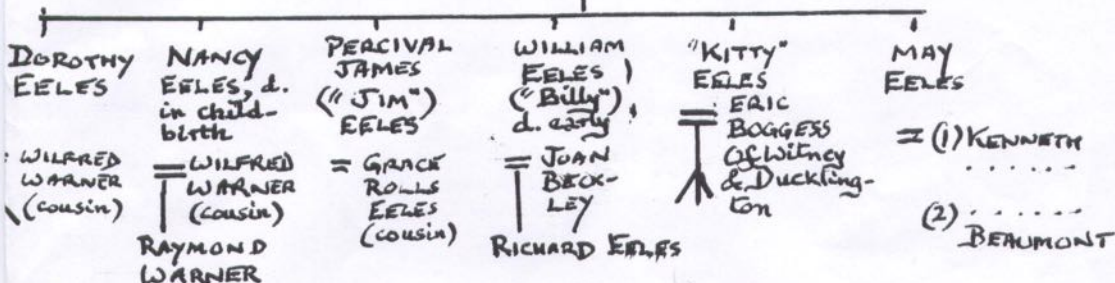 DOROTHY
EELES
: WILFRED
WARNER
(cousin)
NANCY
EELES, d.
in child-
birth
= WILFRED
WARNER
(cousin)
RAYMOND
WARNER
PERCIVAL
JAMES
("JIM")
EELES
= GRACE
ROLLS
EELES
(cousin)
WILLIAM
EELES
("Billy"),
d. early
= JOAN
BECK-
LEY
RICHARD EELES
"KITTY"
EELES
= ERIC
BOGGESS
Of Witney
& Duckling-
ton
MAY
EELES
= (1) KENNETH
. . . . . .
(2) . . . . . .
BEAUMONT